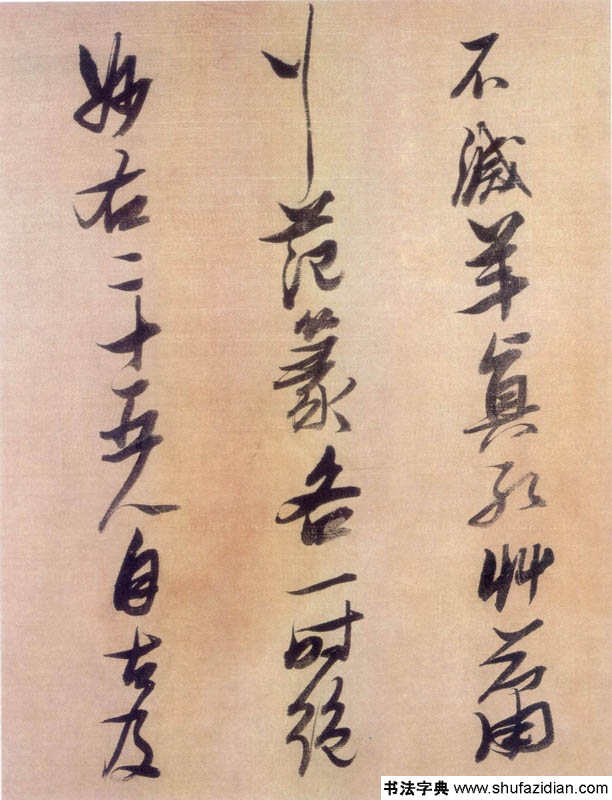 不減羊真孔艸蕭
行范篆各一時絶
妙右二十五人自古及
书法字典 www.shufazidian.com